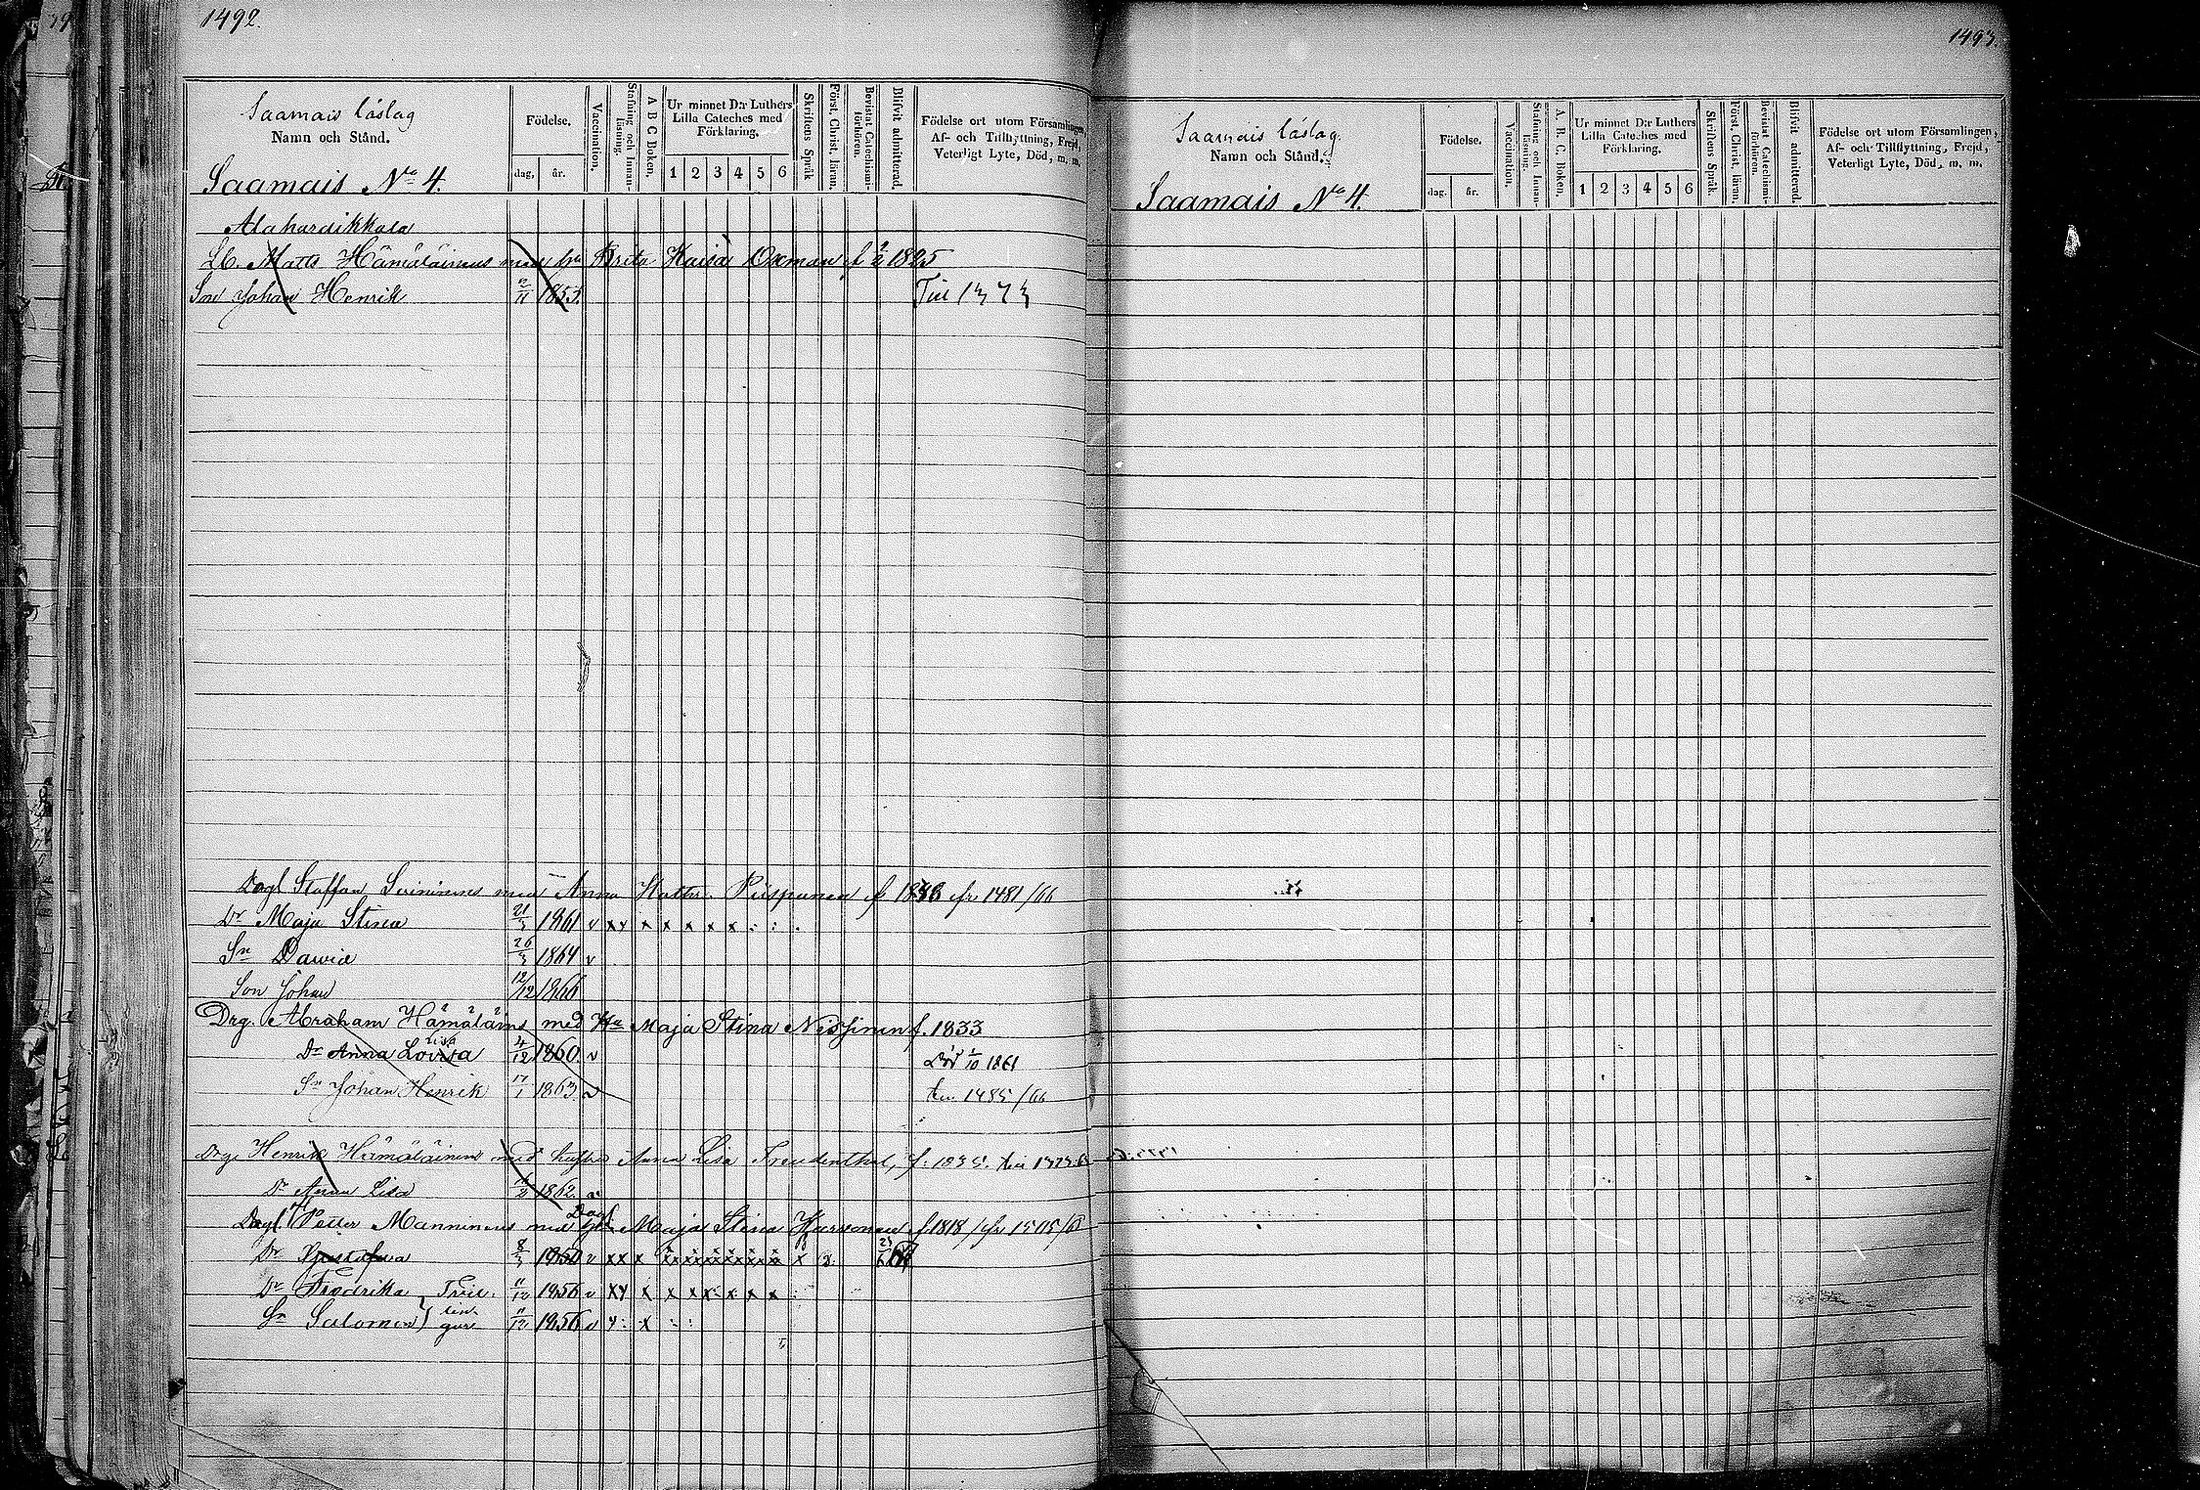 1492.
Saamais läslag
Namn och Stånd.
Födelse.
dag, år.
Vaccination.
Stafning och Innanläsning.
A B C Boken.
Ur minnet D:r Luthers Lilla Cateches med Förklaring.
1 2 3 4 5 6
Skriftens Språk
Först. Christ. läran.
Bevistat Catechismiförhören.
Blifvit admitterad.
Födelse ort utom Församlingen,
Af- och Tillflyttning, Frejd,
Veterligt Lyte, Död, m. m.
Saamais No 4.
Alahardikkala
Matts Hämäläinens med hu Brita Kaisa Oxman f 1825
Son Johan Henrik 2/11 1853. Till 1373
Dagl Staffan med Anna Piispanen f 1836 fr 1481/66
Dr Maja Stina 21/3 1861 v xy x x x x x
Sn Dawid 26/3 1864 v
Son Johan 12/12 1866
Drg. Abraham Hämäläins med Hu Maja Stina Nissinen f. 1833
Dr Anna Lovisa Lisa 4/12 1860 v Död 1/10 1861
Sn Johan Henrik 17/1 1863 v till 1485/66
Drg. Henrik Hämäläinens med hustru Anna Lisa Freudenthal, f. 1835. till 1373
Dr Anna Lisa 1862. v
Dagl Petter Manninens med Maja Stina Karvonen f 1818 fr 1505/63
Dr Gustafva 8/3 1850 v xx x
Dr Fredrika 11/12 1856 v xy x x x x x x
Sn Salomon 11/12 1856 v y x
Tvillingar
1493.
Saamais läslag.
Namn och Stånd.
Födelse.
dag, år.
Vaccination.
Stafning och Innanläsning.
A. B. C. Boken.
Ur minnet D:r Luthers Lilla Cateches med Förklaring.
1 2 3 4 5 6
Skriftens Språk.
Först. Christ. läran.
Bevistat Catechismiförhören.
Blifvit admitterad.
Födelse ort utom Församlingen,
Af- och Tillflyttning, Frejd,
Veterligt Lyte, Död, m. m.
Saamais No 4.